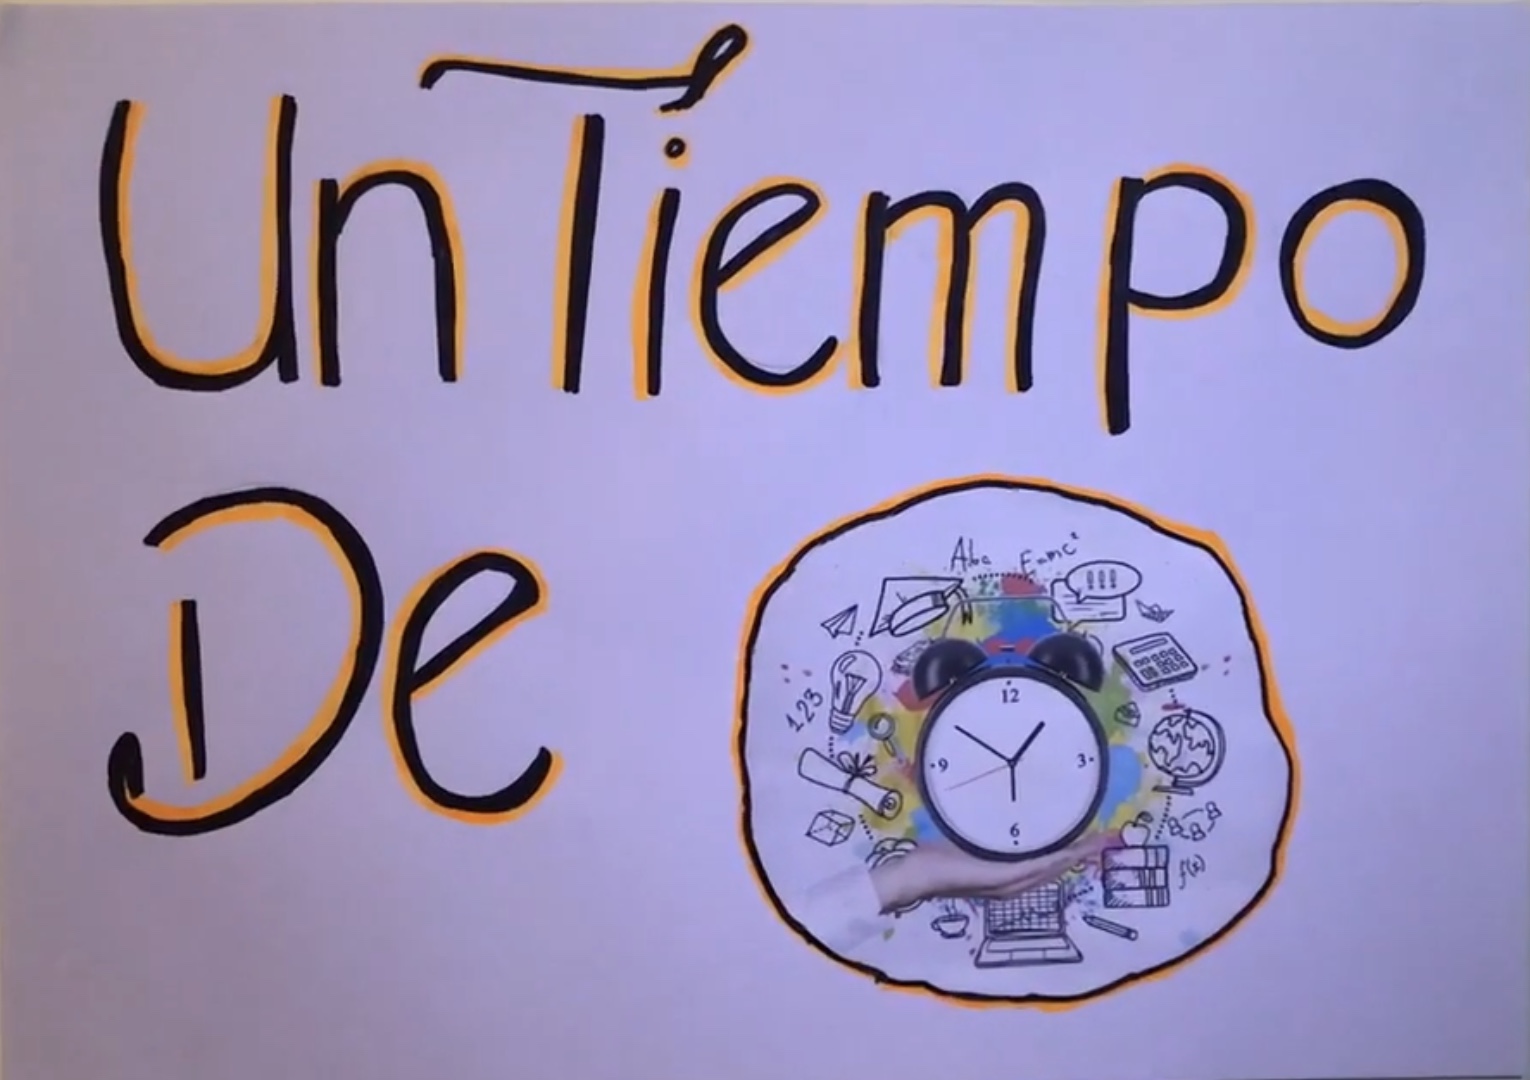 Un Tiempo
De
Abc E=mc²
123
12
9 3
6
f(x)